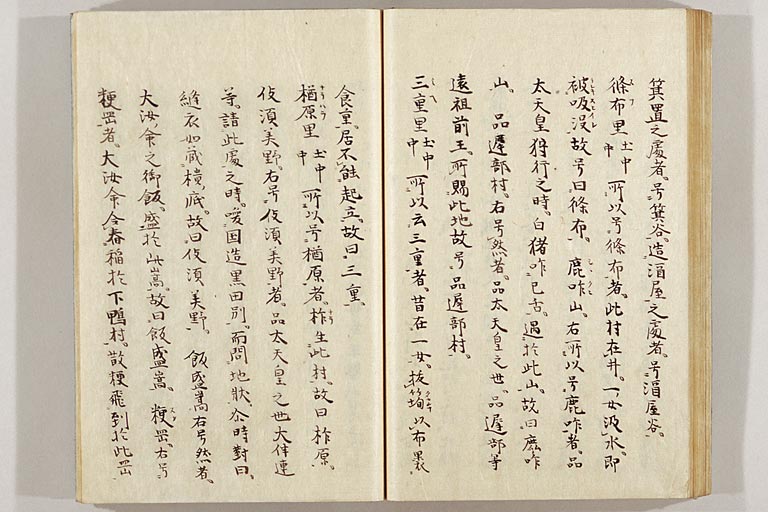 箕置之處者。号箕谷。造酒屋之處者。号酒屋谷。
條布里 土中中 所以号條布者。此村在井。一女汲水。即
被吸没故号曰條布。 鹿咋山。右所以号鹿咋者。品
太天皇狩行之時。白猪咋己舌。遇於此山。故曰鹿咋
山。 品遅部村。右号然者。品太天皇之世。品遅部等
遠祖前玉。所賜此地故号品遅部村。
三重里 土中中 所以云三重者。昔在一女。拔筍以布裹
食重。居不能起立。故曰三重。
楢原里 土中中 所以号楢原者。柞生此村。故曰柞原。
伎須美野。右号伎須美野者。品太天皇之世大伴連
等。請此處之時。喚国造黒田別。而問地状。尒時對曰。
縫衣如蔵樻底。故曰伎須美野。 飯盛嵩右号然者。
大汝命之御飯。盛於此嵩。故曰飯盛嵩。 粳罡。右号
粳罡者。大汝命令舂稲於下鴨村。散粳飛到於此罡